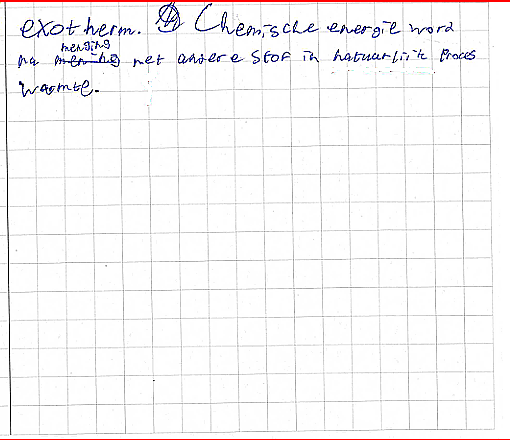 exotherm. Chemische energie word
na menging met andere stof in natuurlijk proces
warmte.